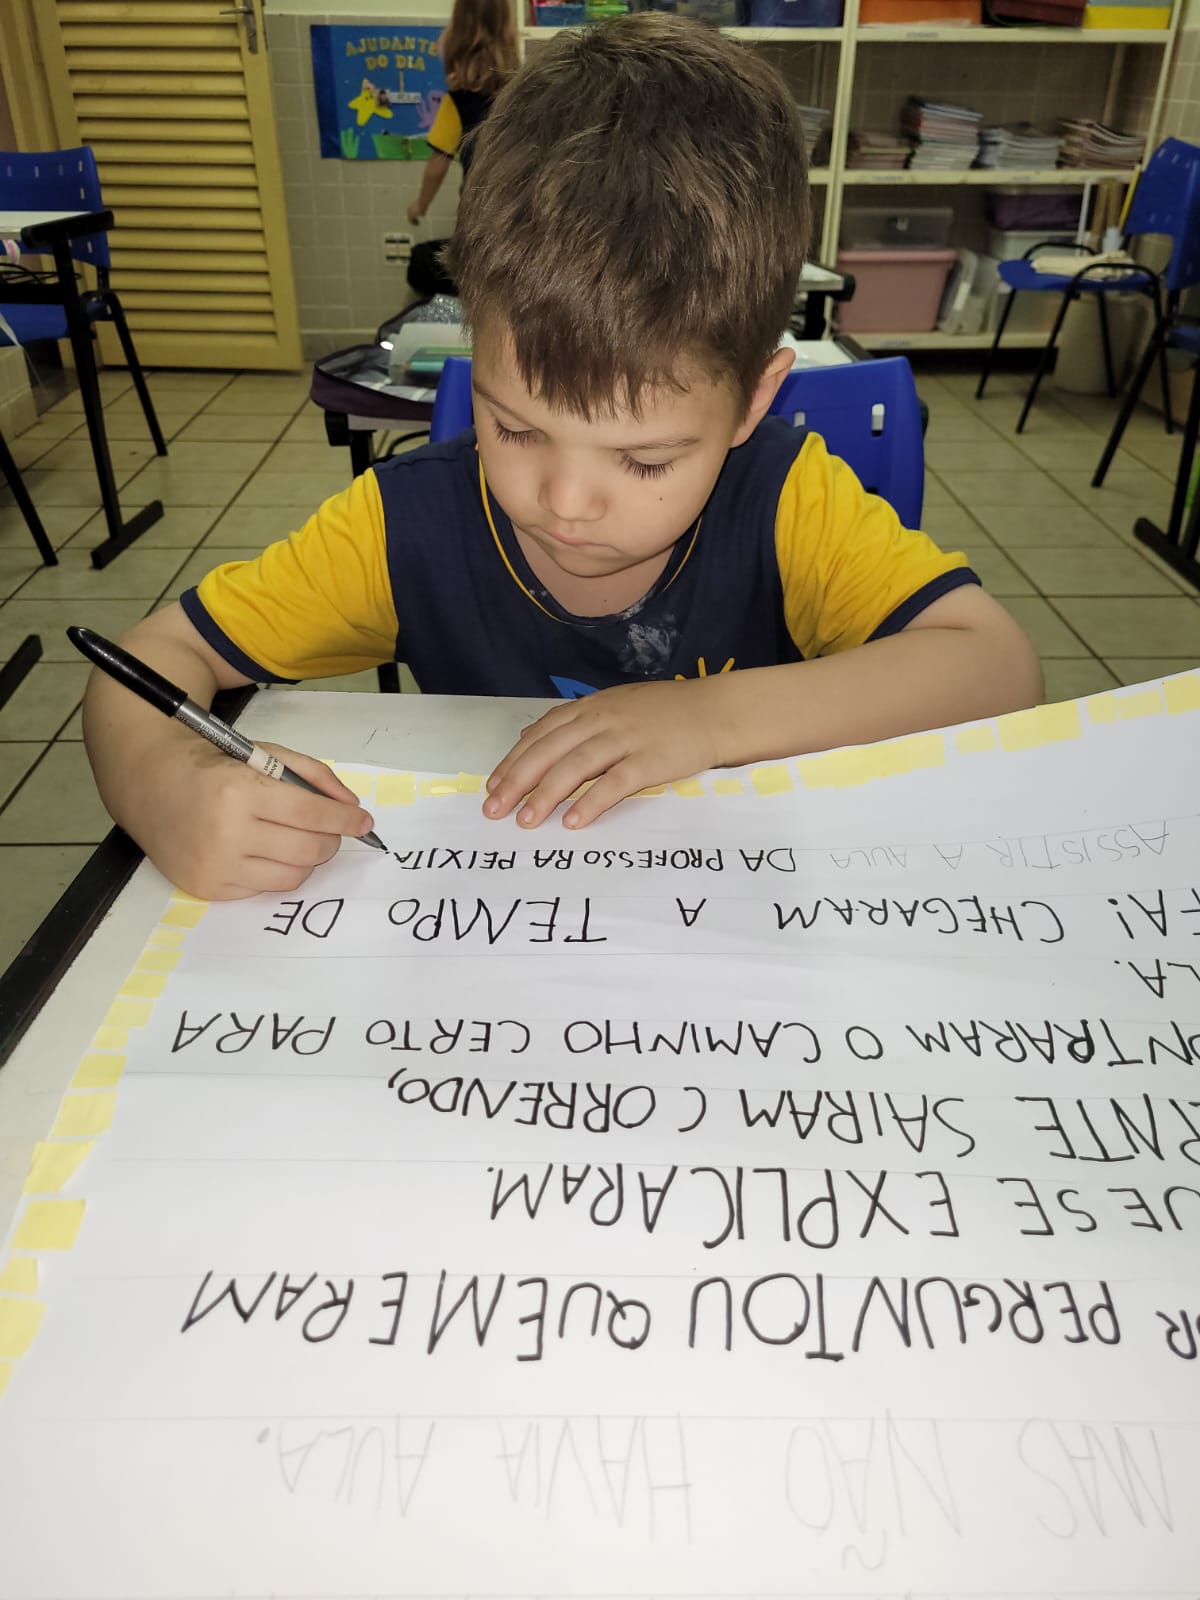 AJUDANTE
DO DIA
MAS NÃO HAVIA AULA.
R PERGUNTOU QUEM ERAM
UE SE EXPLICARAM.
RNTE SAIRAM CORRENDO,
NTRARAM O CAMINHO CERTO PARA
LA.
FA! CHEGARAM A TEMPO DE
ASSISTIR A AULA DA PROFESSORA PEIXITA.